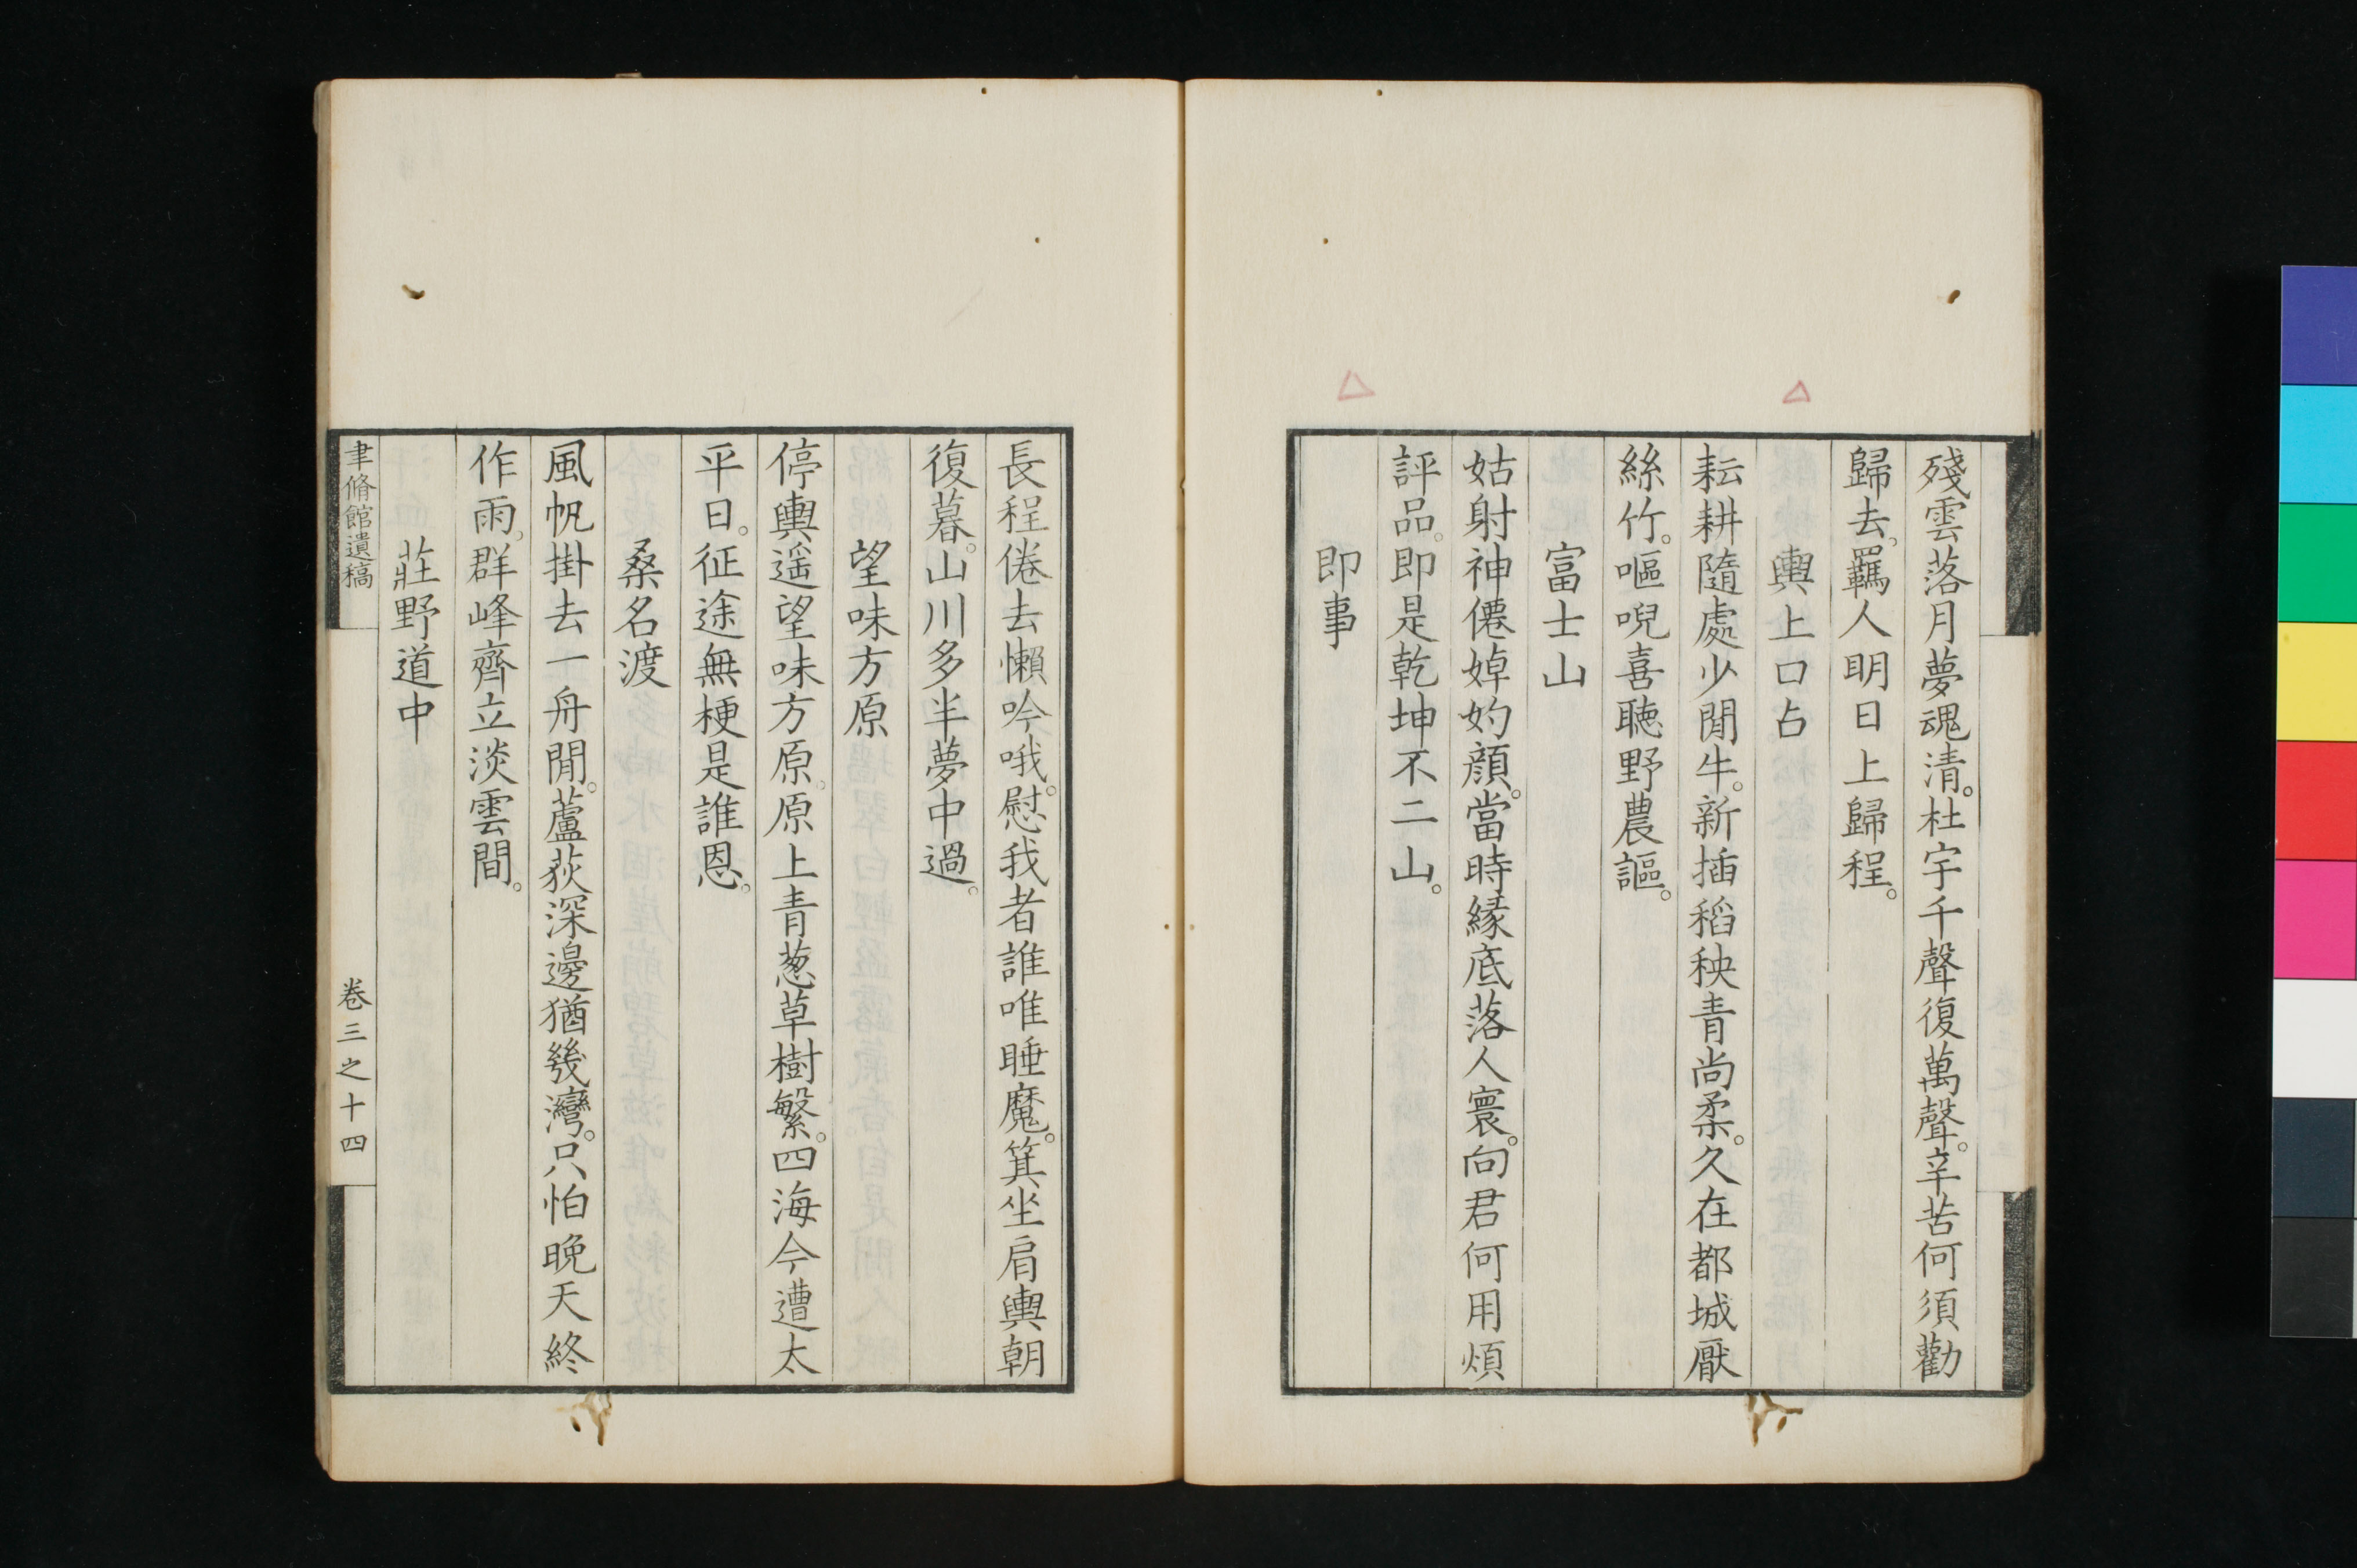 殘雲落月夢魂清。杜宇千聲復萬聲。辛苦何須勸
歸去。羈人明日上歸程。
輿上口占
耘耕隨處少閒牛。新插稻秧青尚柔。久在都城厭
絲竹。嘔唲喜聽野農謳。
富士山
姑射神僊婥妁顔。當時緣底落人寰。向君何用煩
評品。即是乾坤不二山。
即事
長程倦去懶吟哦。慰我者誰唯睡魔。箕坐肩輿朝
復暮。山川多半夢中過。
望味方原
停輿遥望味方原。原上青葱草樹繁。四海今遭太
平日。征途無梗是誰恩。
桑名渡
風帆掛去一舟閒。蘆荻深邊猶幾灣。只怕晚天終
作雨。群峰齊立淡雲間。
莊野道中
聿脩館遺稿
卷三之十四